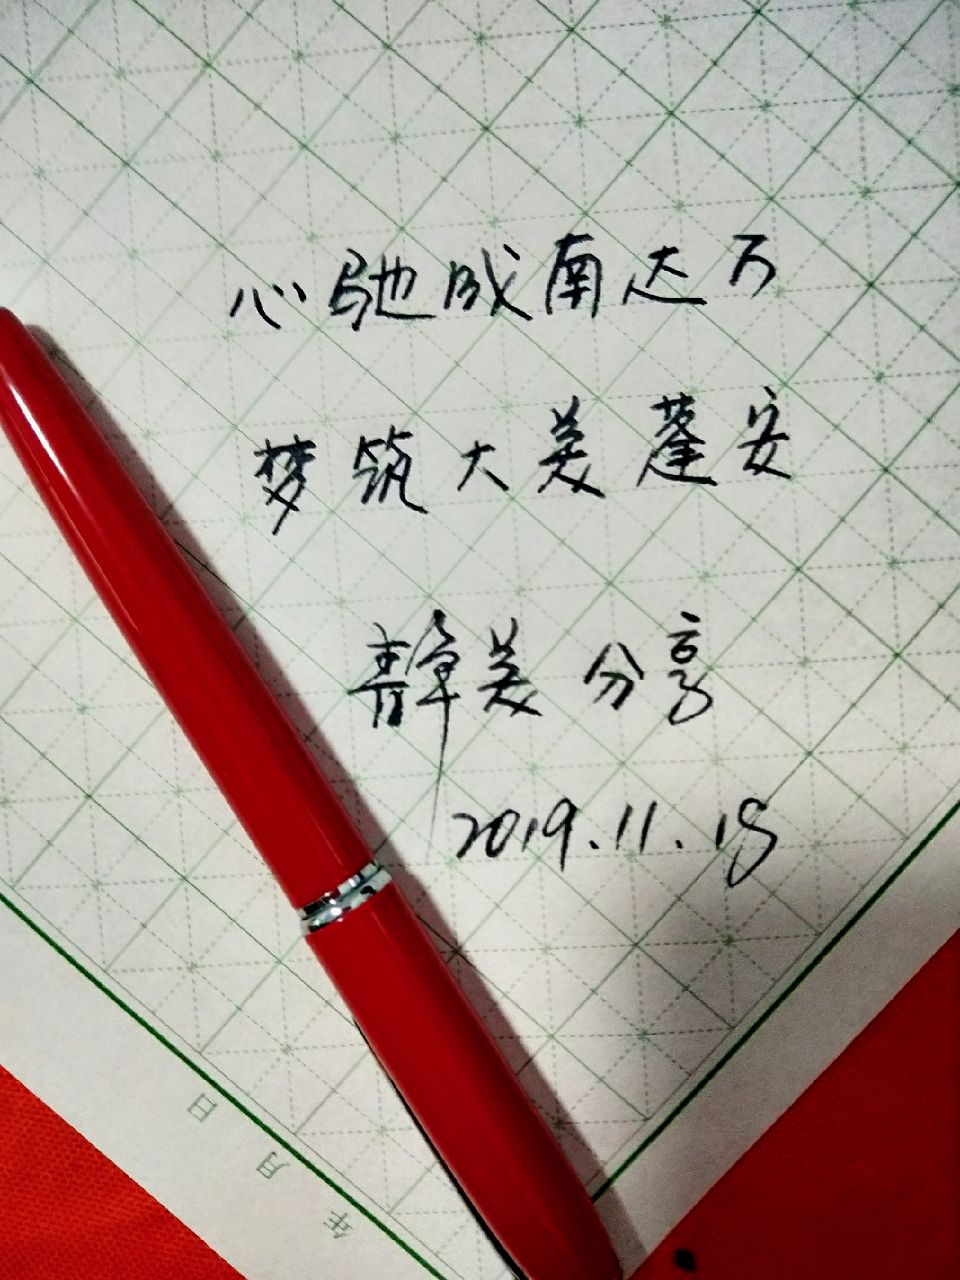 心驰成南达万
梦筑大美蓬安
静美 分享
2019.11.18
日
月
年